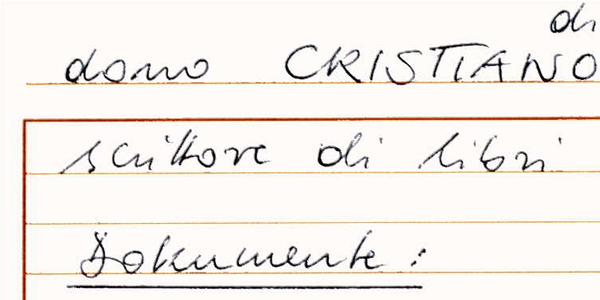 di
dono CRISTIANO
scrittore di libri
Dokumente: